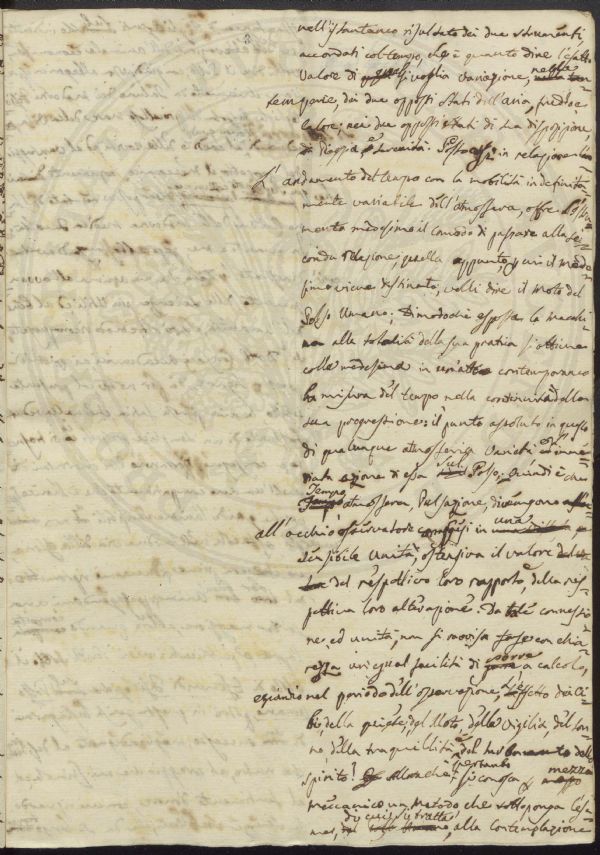 nell'istantaneo risultato dei due strumenti
accordati col tempo, che è quanto dire l'esatto
valore di qual si voglia variazione, nella
temperie, dei due opposti stati dell'aria, freddo, e
calore: nei due opposti stati di sua disposizione,
di pioggia, e serenità. Posto in relazione
l'andamento del tempo con la mobilità indefinita-
mente variabile dell'atmosfera, offre
mento medesimo il comodo di passare alla se-
conda relazione, quella appunto, a cui il mede-
simo viene destinato, vo' dire il moto del
Polso Umano. Dimodochè esposta la macchi-
na alla totalità della sua pratica si ottiene
colla medesima in un atto contemporaneo
la misura del tempo nella continuità della
sua progressione: il punto assoluto in
di qualunque atmosferica varietà
azione di essa sul Polso; Quindi è che
Tempo atmosfera, Pulsazione, divengono
all'occhio osservatore in una
sensibile unità, ostensiva il valore
del respettivo loro rapporto, e della res-
pettiva loro alterazione. Da tale connessio-
ne, ed unità, non si ravvisa forse con chia-
rezza un'egual facilità di porre a calcolo,
eziandio nel periodo dell'osservazione, l'effetto dei Ci-
bi, della quiete, del Moto, della Vigilia, del son-
no, della tranquillità, e del turbamento dello
spirito? allorchè pertanto si conosca mezzo
meccanico un Metodo che sottoponga l'esa-
me, di cui si tratta, alla contemplazione